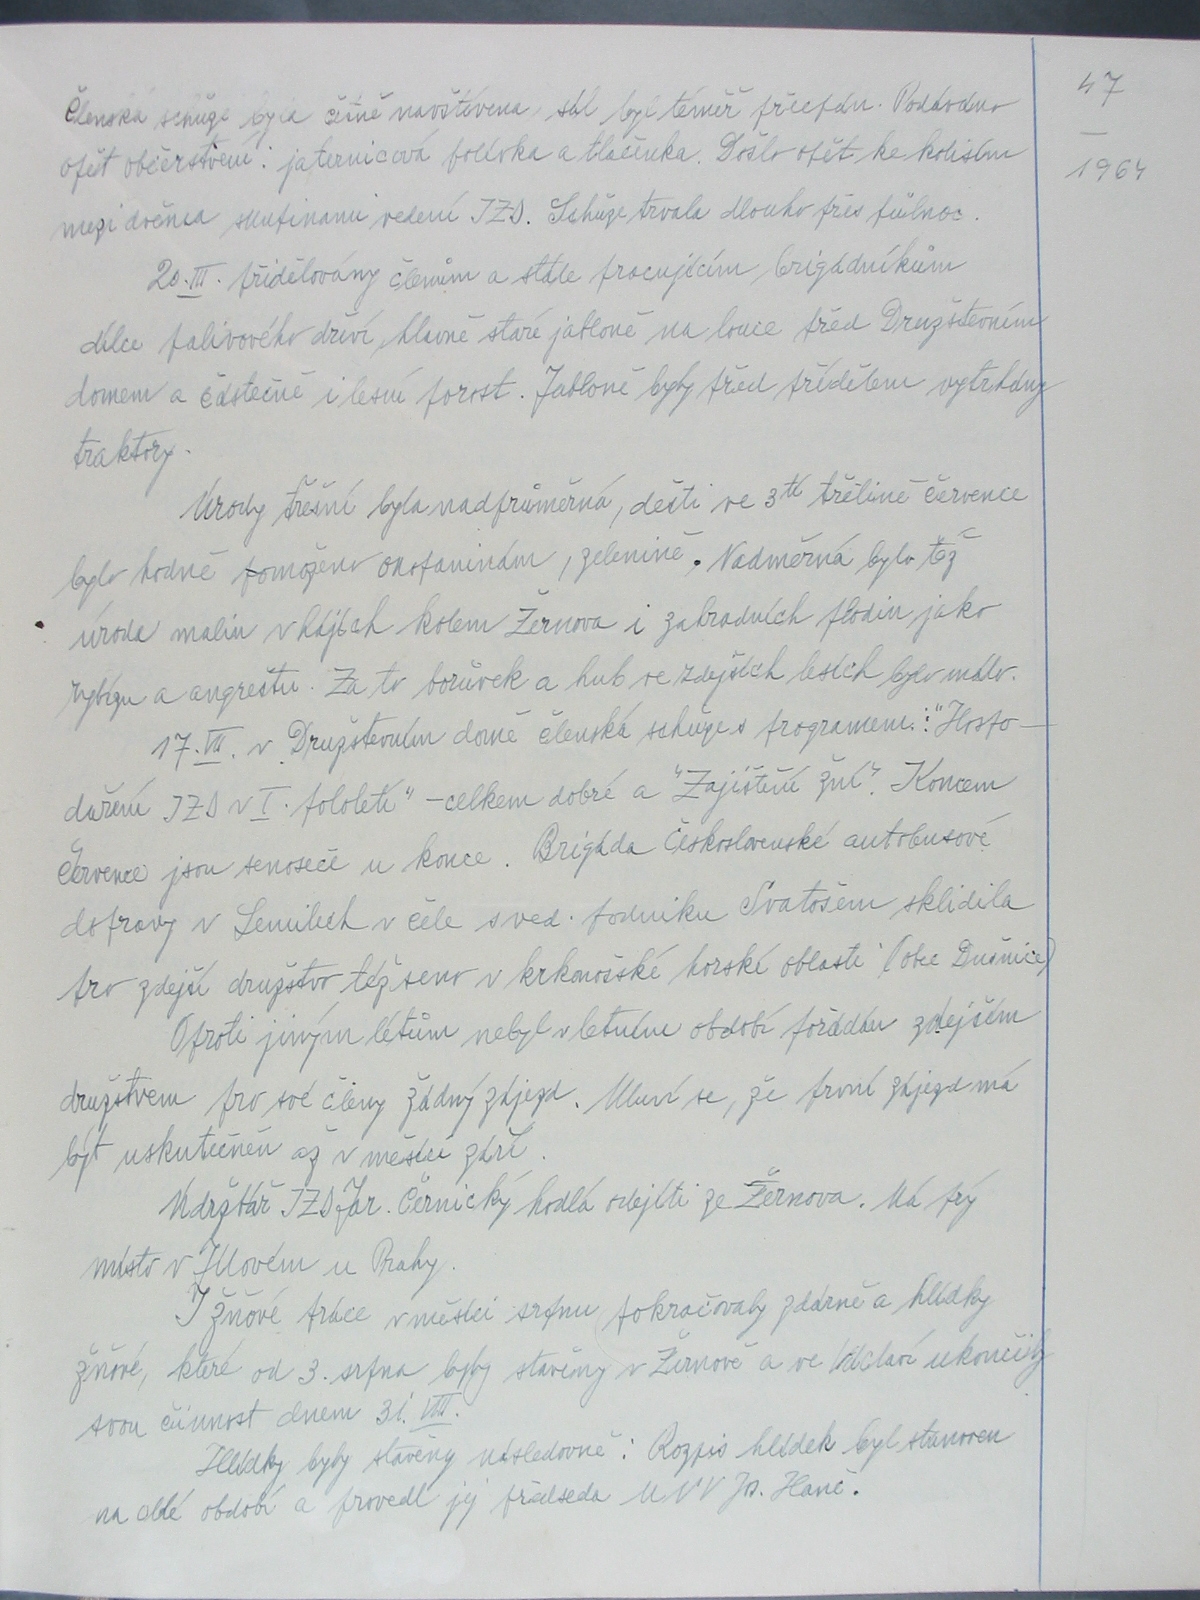 47
1964
Členská schůze byla četně navštívena, sál byl téměř přeplněn. Podáváno
opět občerstvení: jaternicová polévka a tlačenka. Došlo opět ke kolisím
mezi dvěma skupinami vedení JZD. Schůze trvala dlouho přes půlnoc.
20. III. přidělovány členům a stále pracujícím brigádníkům
dílce palivového dříví, hlavně staré jabloně na louce před Družstevním
domem a částečně i lesní porost. Jabloně byly před přídělem vytrhány
traktory.
Úrody třešní byla nadprůměrná, dešti ve 3tí třetině července
bylo hodně pomoženo okopaninám, zelenině. Nadměrná bylo též
úroda malin v hájích kolem Žernova i zahradních plodin jako
rybízu a angreštu. Za to borůvek a hub ve zdejších lesích bylo málo.
17. VII. v Družstevním domě členská schůze s programem: "Hospo-
daření JZD v I. pololetí" - celkem dobré a "Zajištění žní". Koncem
července jsou senoseče u konce. Brigáda Československé autobusové
dopravy v Semilech v čele s ved. podniku Svatošem sklidila
pro zdejší družstvo též seno v krkonošské horské oblasti (obec Dušnice)
Oproti jiným létům nebyl v letním období pořádán zdejším
družstvem pro své členy žádný zájezd. Mluví se, že první zájezd má
být uskutečněn až v měsíci září.
Údržbář JZD Jar. Černický hodlá odejíti ze Žernova. Má prý
místo v Jílovém u Prahy.
I žňové práce v měsíci srpnu pokračovaly zdárně a hlídky
žňové, které od 3. srpna byly stavěny v Žernově a ve Václaví ukončily
svou činnost dnem 31. VIII.
Hlídky byly stavěny následovně: Rozpis hlídek byl stanoven
na celé období a provedl jej předseda MNV Jos. Hanč.